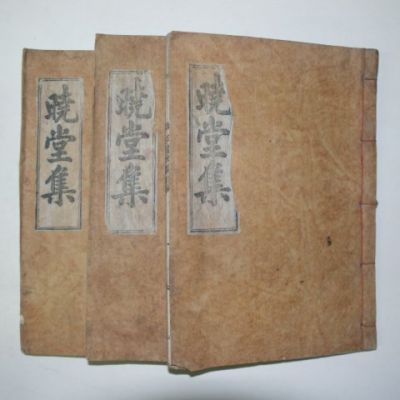 曉堂集
曉堂集
曉堂集